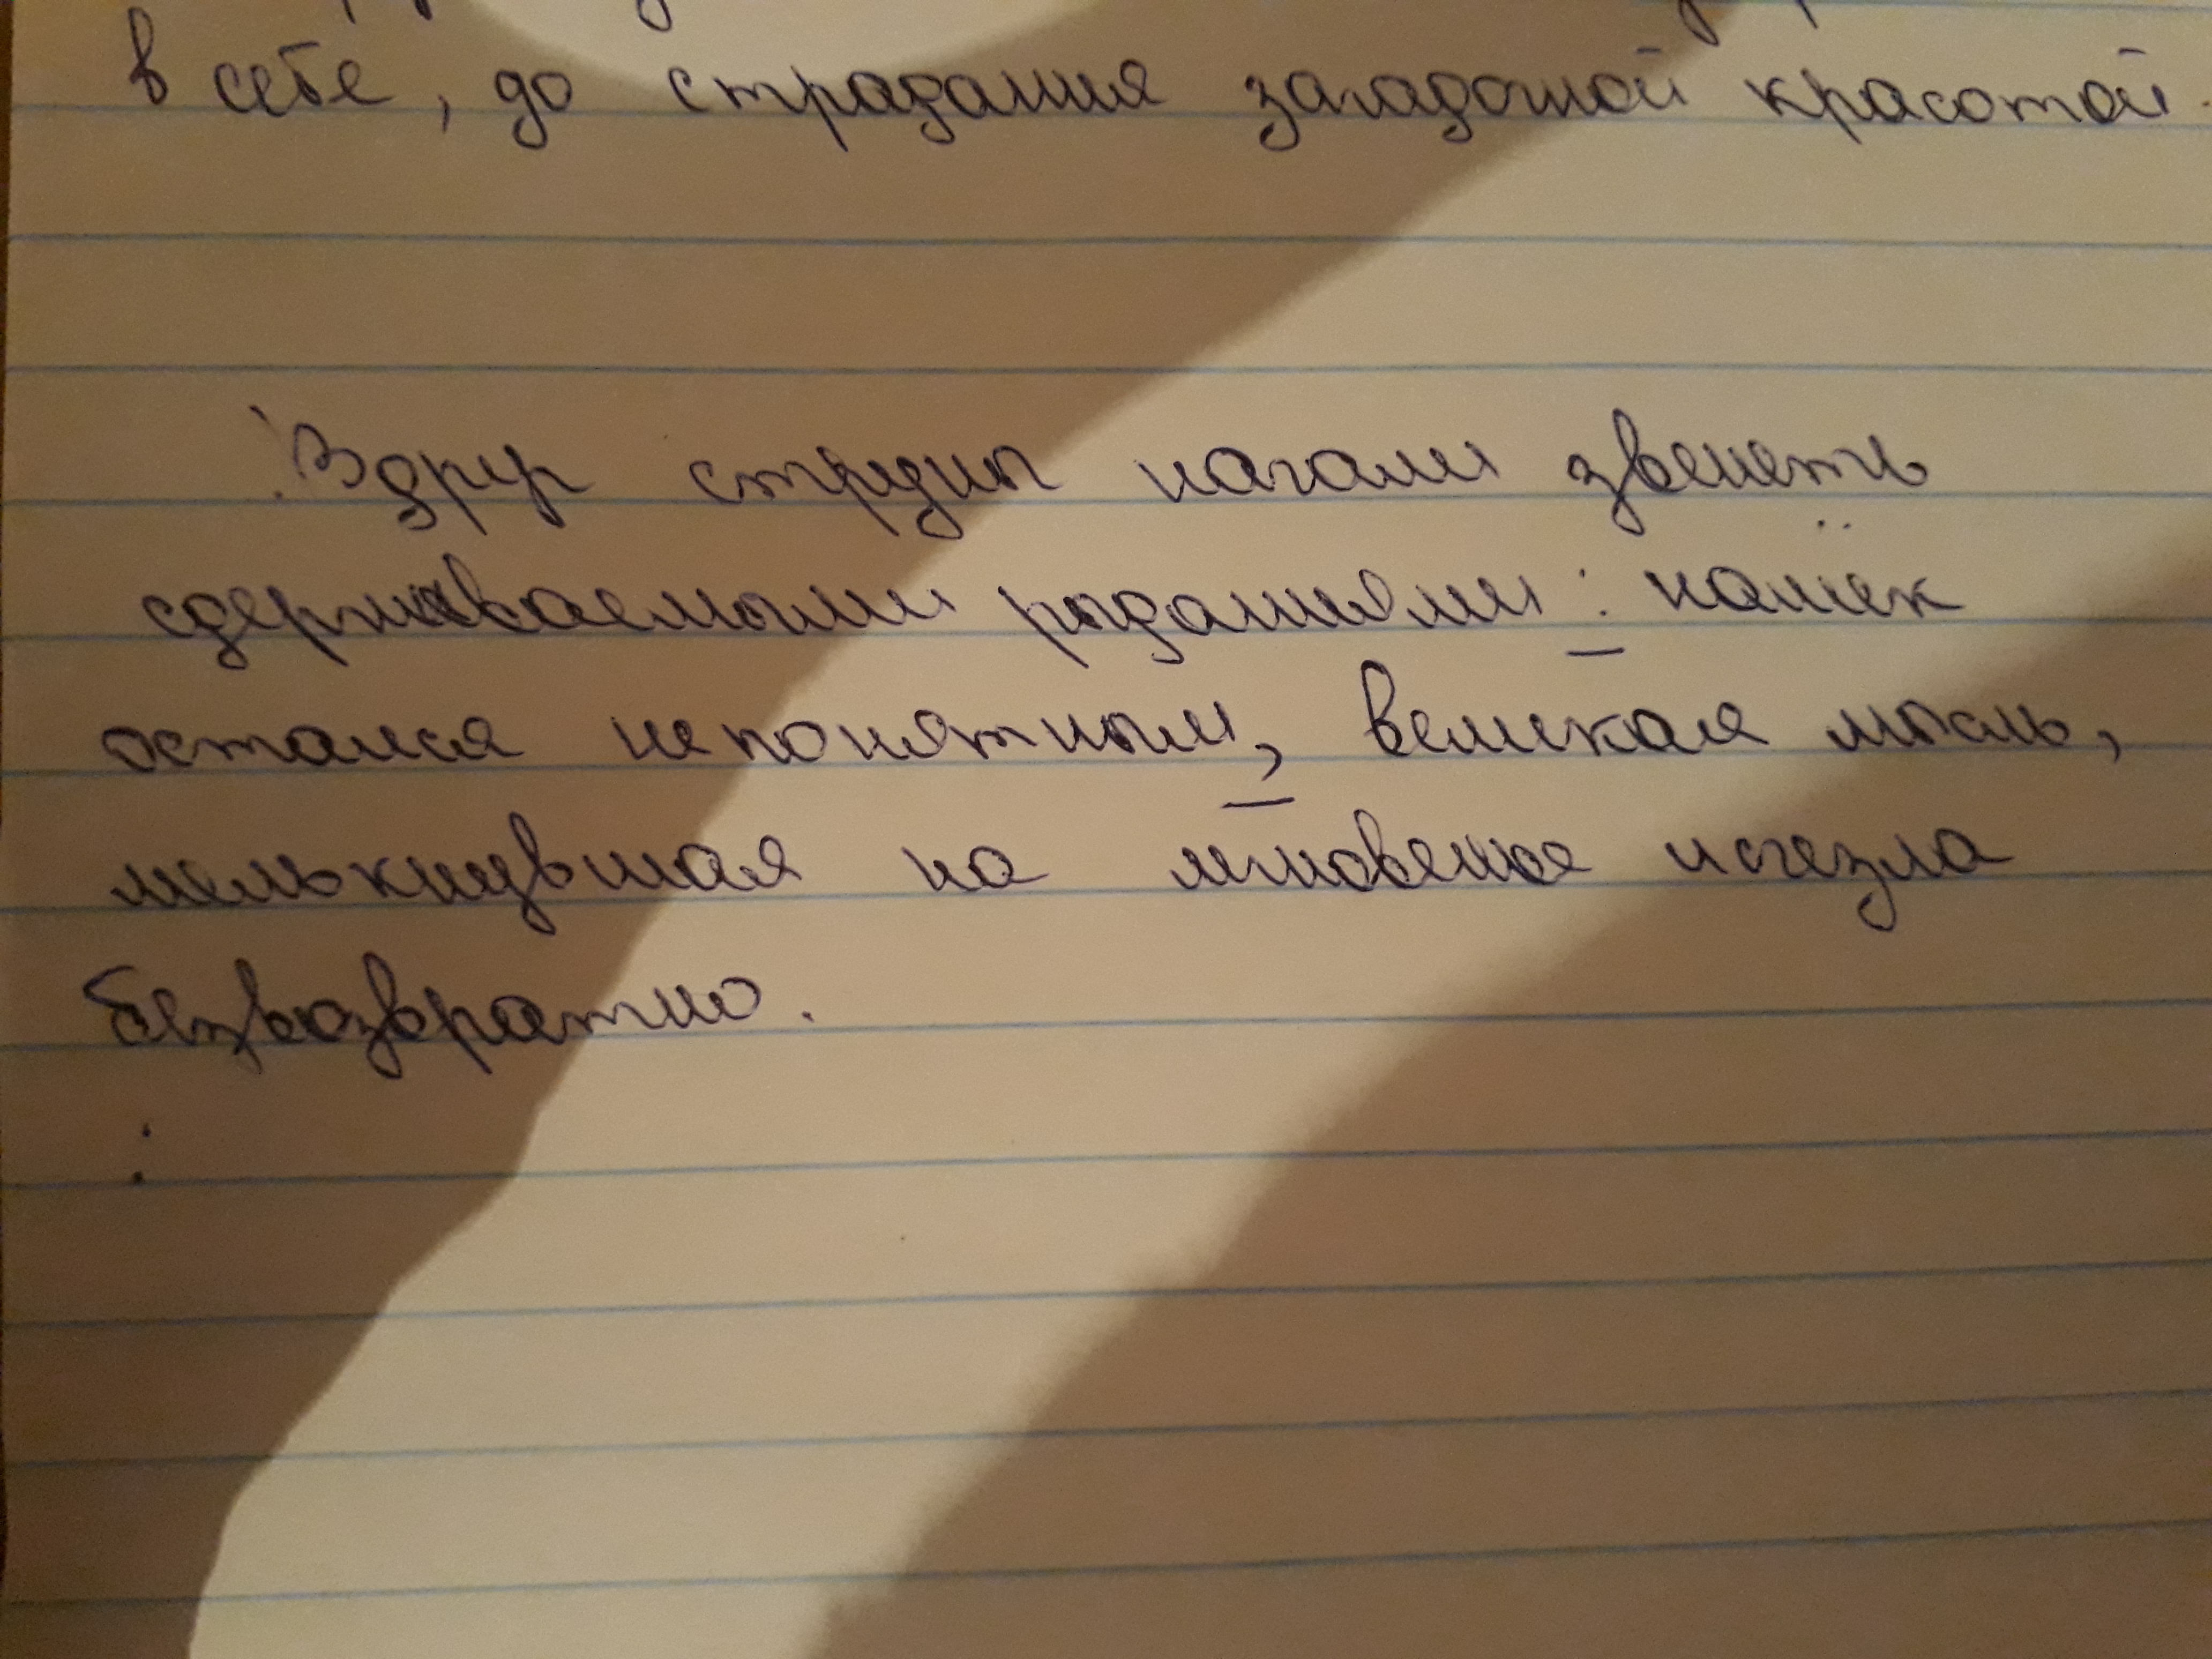 в себе, до страдания загадочной красотой.
Вдруг струны начали звенеть
сдерживаемыми рыданиями: намёк
остался непонятным, великая мысль,
мелькнувшая на мгновенье исчезла
безвозвратно.